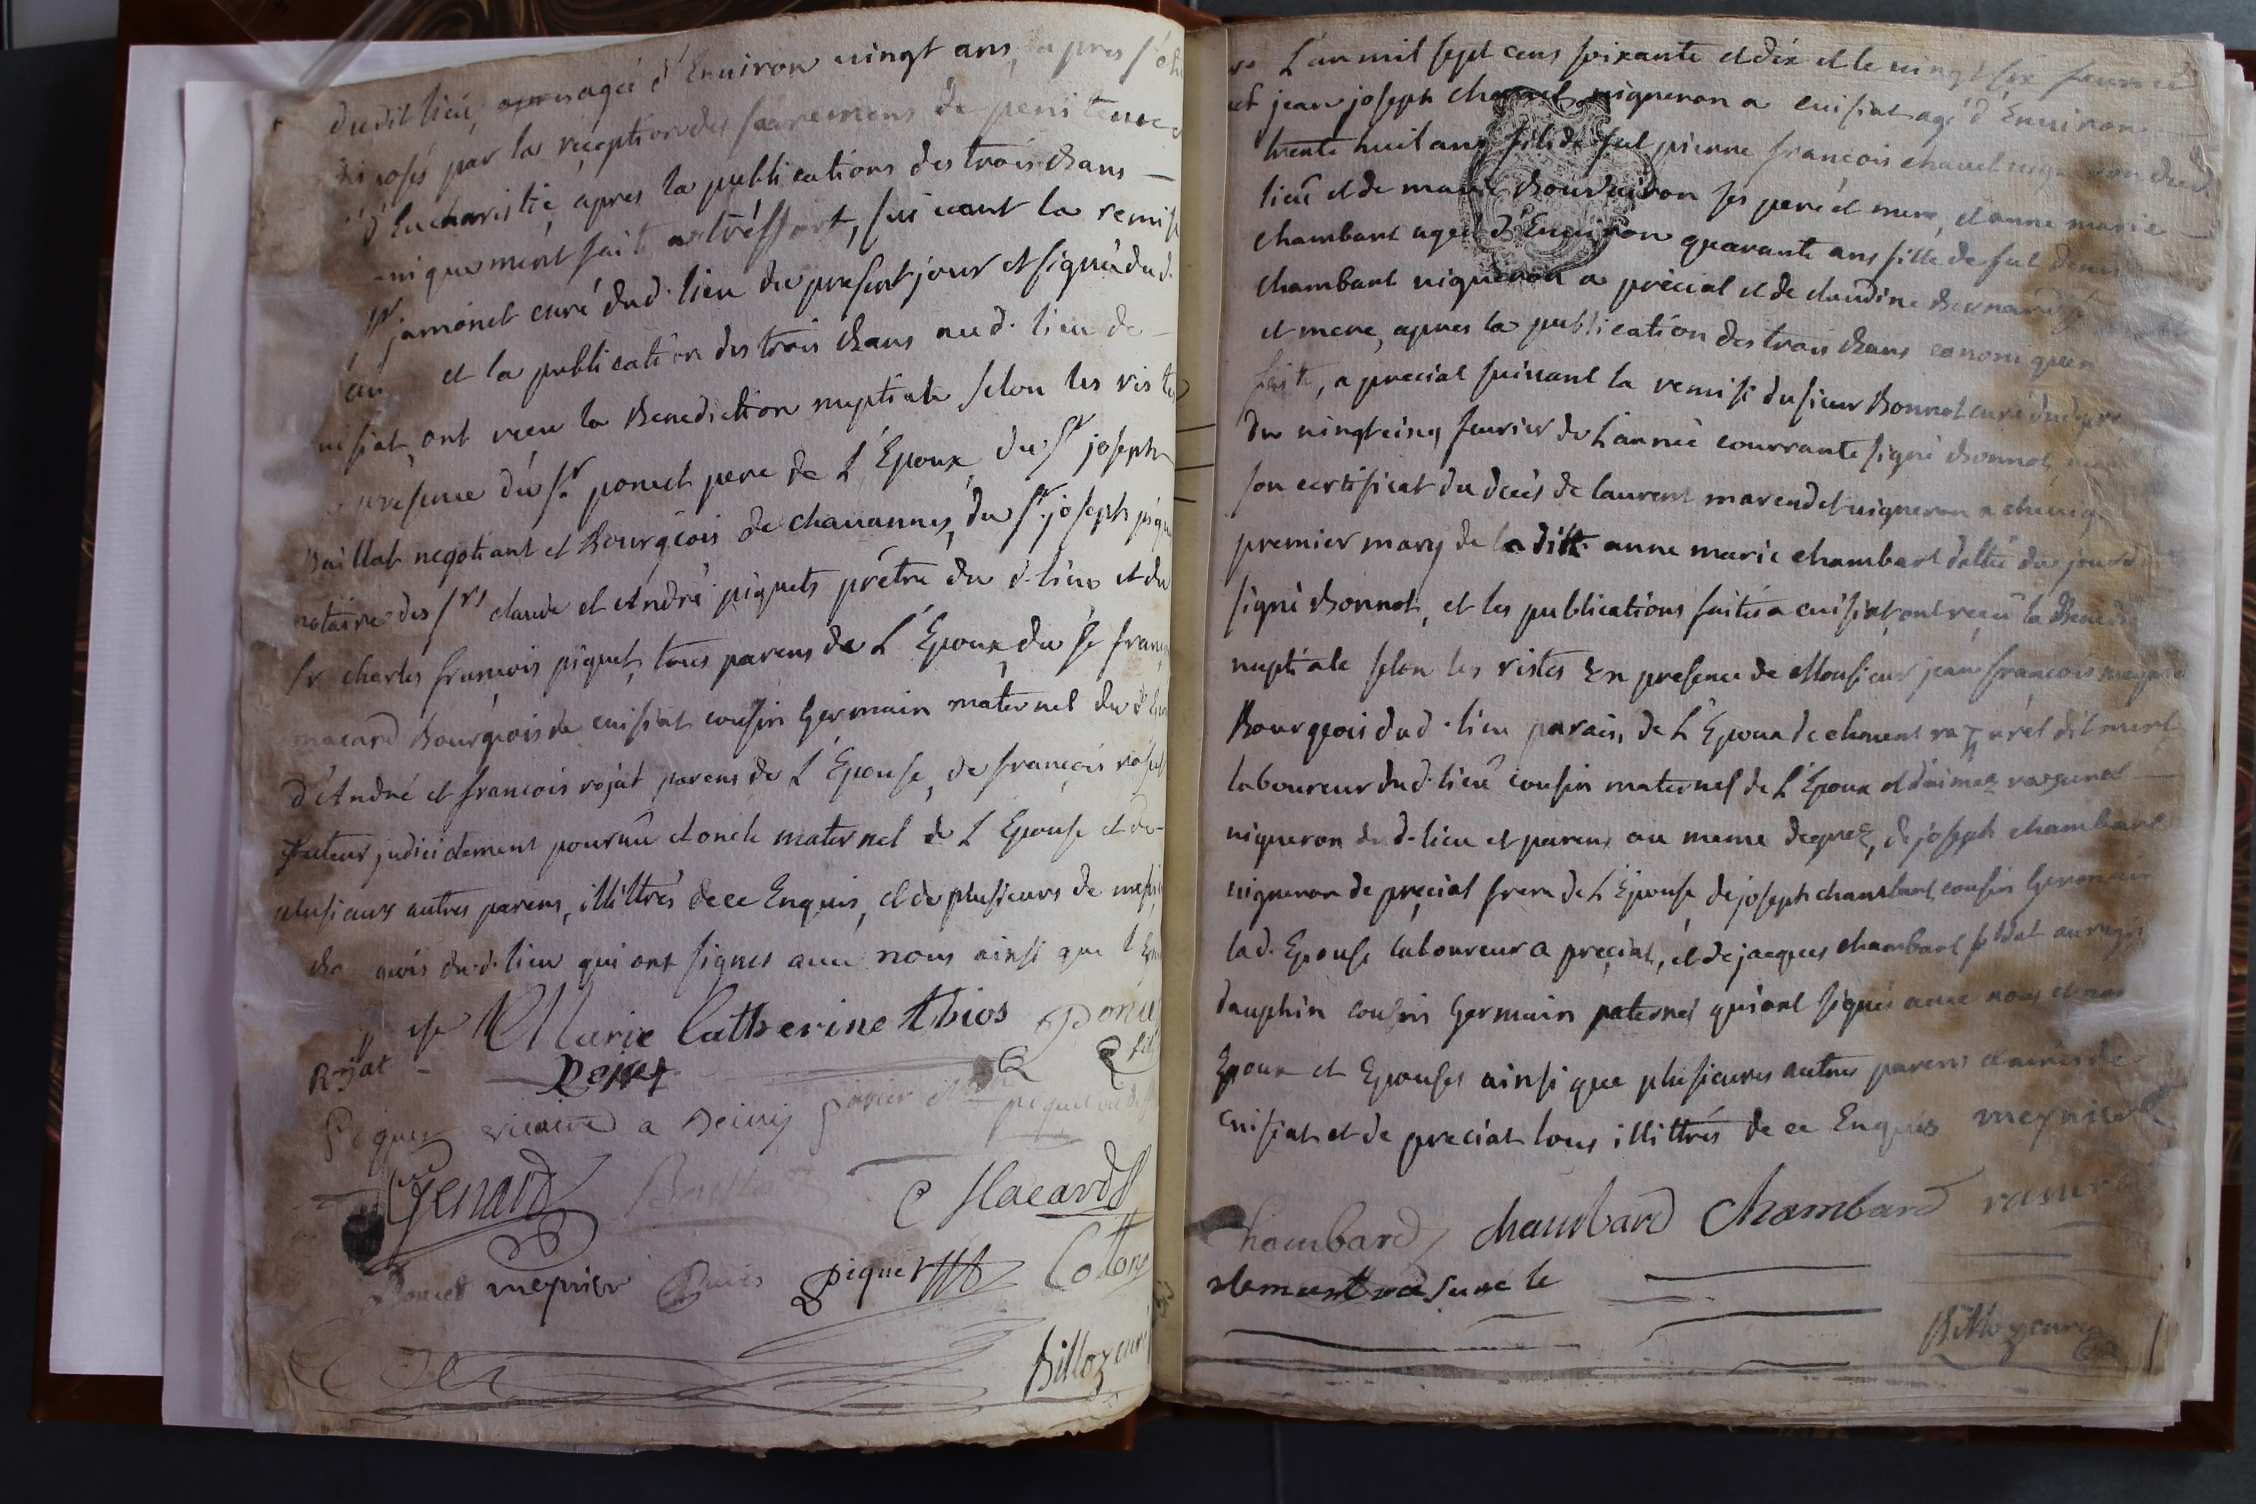 dudit lieu, agée d'Enuiron uingt ans, apres s'être
disposés par la réception des sacremens de penitence
d'Eucharistie, apres la publications des trois bans
niquement faite a tréffort, suiuant la remise
Sr jamonet curé dud. lieu du present jour et signée dud.
et la publication des trois bans aud. lieu de
uisiat, ont reçu la Benediction nuptiale selon les ristes
presence du Sr ponet pere de L'Epoux, du Sr joseph
Baillat negotiant et Bourgeois de chauannes, du Sr joseph piquet
notaire des Srs claude et André piquets prêtre du d. lieu et du
Sr charles francois piquet, tous parens de L'Epoux, du Sr franç
macard Bourgeois de cuisiat cousin Germain maternel du d.
d'André et francois rojat parens de L'Epouse, de françois rojat
tuteur judicielement pouruû et oncle maternel de L'Epouse et de
plusieurs autres parens, illittrés de ce Enquis, et de plusieurs de messieurs
Bo geois du d. lieu qui ont signes auec nous ainsi que l'Epoux
Marie Catherine thios Ponet
Rojat Rojat fils
Piquet uicaire a
Genard Baillat C Macard
Ponet meynier Puis piquet Cotton
Billoz curé
L'an mil sept cens soixante et dix et le uingt six feurier
jean joseph chauet uigneron a cuisiat agé d'Enuiron
trente huit ans fils de fut pierre francois chauet uigneron dud.
lieu et de marie Bouduidon ses pere et mere, et anne marie
chambart agée d'Enuiron quarante ans fille de fut denis
chambart uigneron a préciat et de claudine Bernard
et mere, apres la publication des trois bans canoniquem
faite, a preciat suiuant la remise du sieur Bonnot curé dud.
du uingt cinq feurier de L'année courrante signé Bonnot,
son certificat du decès de laurent marendet uigneron a
premier mary de la ditte anne marie chambart dattée du jour d
signé Bonnot, et les publications faites a cuisiat, ont reçu la Benedi
nuptiale selon les ristes En presence de Monsieur jean francois meynier
Bourgeois dud. lieu parain, de L'Epoux de clement razurel dit
laboureur dud. lieu cousin maternel de L'Epoux et d'aimez razurel
uigneron dud. lieu et parens au meme degrez, de joseph chambart
uigneron de preciat frere de L'Epouse, de joseph chambart cousin Germain
lad. Epouse laboureur a preciat, et de jacques chambart soldat au regi
dauphin cousin Germain paternel qui ont signés auec nous et non
Epoux et Epouses ainsi que plusieures autres parens et amis de
cuisiat et de preciat tous illittrés de ce Enquis meynier
Chambard chambard Chambard rasurel
clement rasurele
Billoz curé